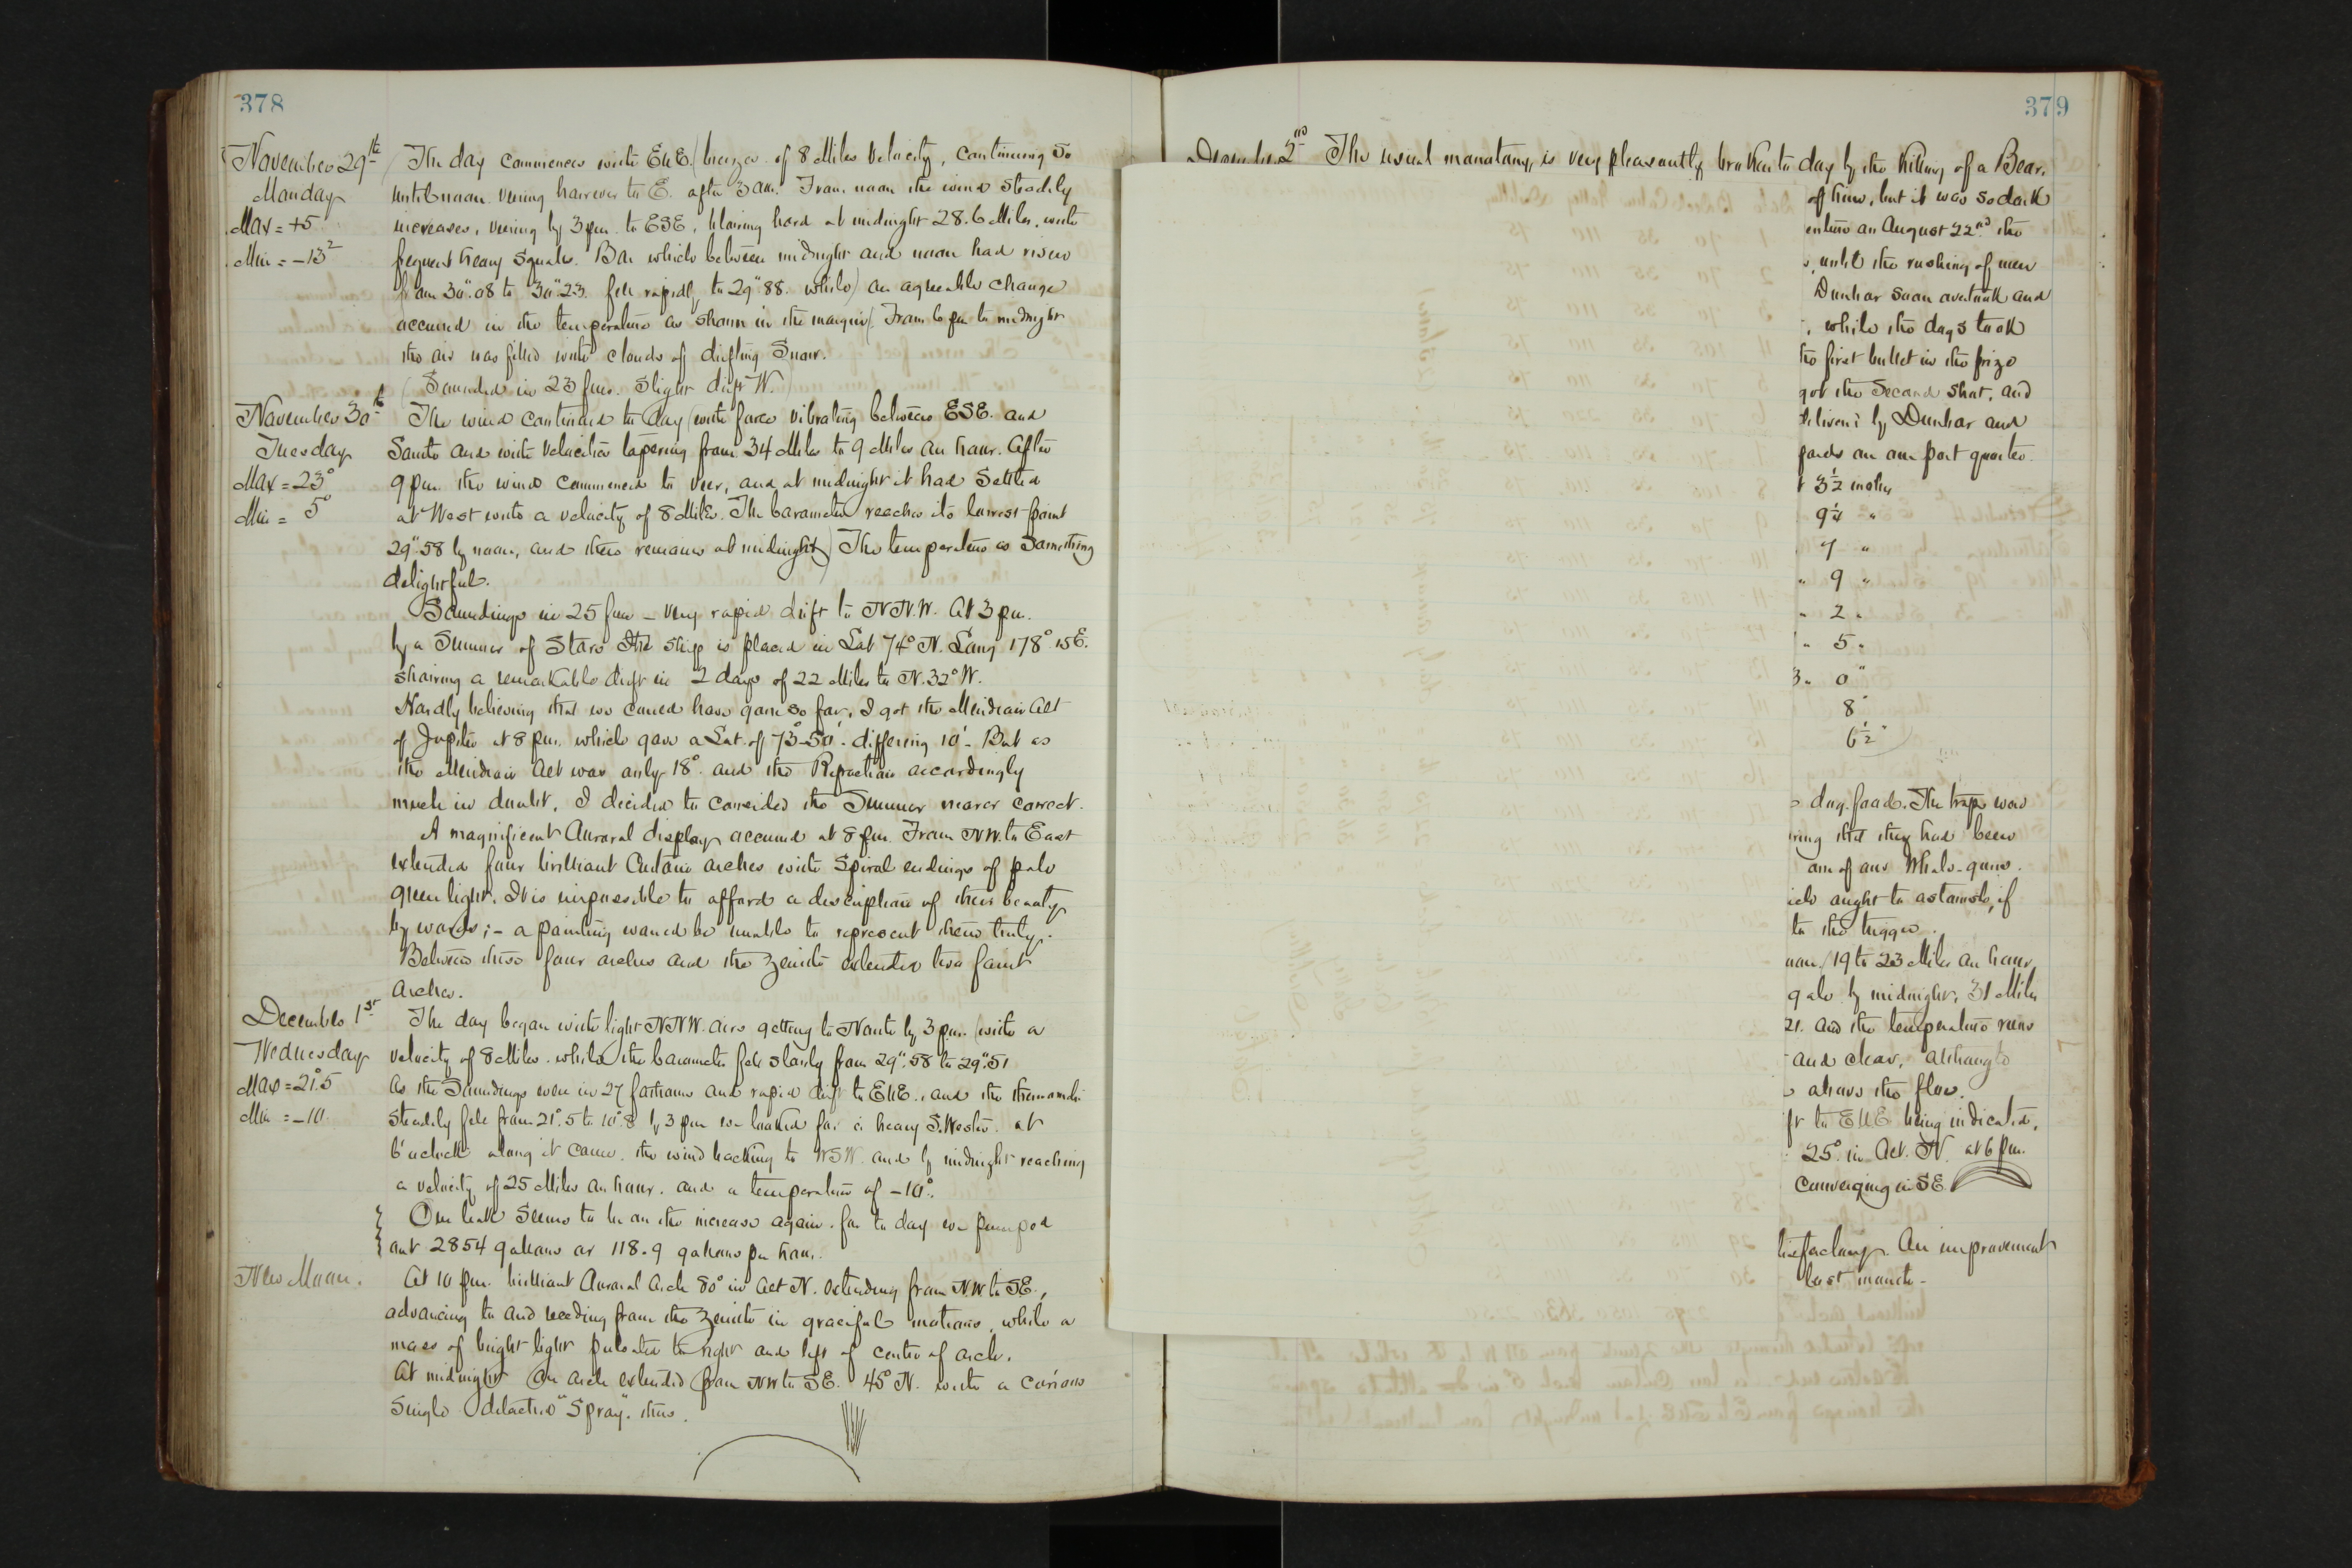 378
November 29th
Monday
Max = +5
Min = -13²
The day commences with ENE. breeze of 8 Miles velocity, continuing so
until noon veering however to E. after 3 am. From noon the wind steadily
increases, veering by 3 pm to ESE, blowing hard at midnight 28.6 Miles, with
frequent heavy squalls. Bar which between midnight and noon had risen
from 30".08 to 30".23. fell rapidly to 29".88. while an agreeable change
occurred in the temperature as shown in the margin. From 6 pm to midnight
the air was filled with clouds of drifting Snow.
Sounded in 23 fms. Slight drift W.
November 30th
Tuesday
Max = 23°
Min = 5°
The wind continued to day with force vibrating between ESE. and
South and with velocities tapering from 34 Miles to 9 Miles an hour. After
9 pm the wind commenced to veer, and at midnight it had settled
at West with a velocity of 8 Miles. The barometer reaches its lowest point
29".58 by noon, and there remains at midnight. The temperature is something
delightful.
Soundings in 25 fms - very rapid drift to NNW. At 3 pm.
by a Sumner of Stars the ship is placed in Lat 74° N. Long 178° 15 E.
showing a remarkable drift in 2 days of 22 Miles to N.32°W.
Hardly believing that we could have gone so far, I got the Meridian Alt
of Jupiter at 8 pm. which gave a Lat. of 73°-50'. differing 10'- But as
the Meridian Alt was only 18° and the Refraction accordingly
much in doubt, I decided to consider the Sumner nearer correct.
A magnificent Auroral display occurred at 8 pm. From NW. to East
extended four brilliant Curtain arches with spiral endings of pale
green light. It is impossible to afford a description of their beauty
by words; - a painting would be unable to represent them truly.
Between these four arches and the zenith extended two faint
arches.
December 1st
Wednesday
Max = 21°.5
Min = -10
The day began with light NNW. airs getting to North by 3 pm. with a
velocity of 8 Miles. while the barometer fell slowly from 29".58 to 29".51
As the Soundings were in 27 fathoms and rapid drift to ENE., and the thermometer
steadily fell from 21°.5 to 10°.8 by 3 pm we looked for a heavy S.Wester. at
6 o'clock along it came. the wind backing to WSW. and by midnight reaching
a velocity of 25 Miles an hour. and a temperature of -10°.
Our leak seems to be on the increase again. for to day we pumped
out 2854 gallons or 118.9 gallons per hour.
New Moon.
At 10 pm. brilliant Auroral Arch 80° in Alt N. extending from N.W. to SE.,
advancing to and receding from the zenith in graceful motions, while a
mass of bright light pulsated to right and left of center of arch.
At midnight an arch extended from NW to SE. 45° N. with a curious
single detached "Spray". thus.
379
December 2nd The usual monotony, is very pleasantly broken to day by the killing of a Bear.
of him, but it was so dark
enture on August 22nd the
until the rushing of men
Dunbar soon overtook and
, while the dogs took
the first bullet in the prize
got the second shot, and
by Dunbar and
yards on our port quarter.
3½ inches
9¼ "
7 "
" 9 "
" 2 "
" 5 "
3 " 0 "
8 "
6½ "
dog food. The traps were
ring that they had been
one of our Whale-guns.
ich ought to astonish, if
to the trigger.
noon, 19 to 23 Miles an hour
gale by midnight, 31 Miles
21. and the temperature runs
and clear, although
above the floe.
ft to ENE being indicated.
25° in Alt. N. at 6 pm.
Converging in SE
isfactory. An improvement
last month -